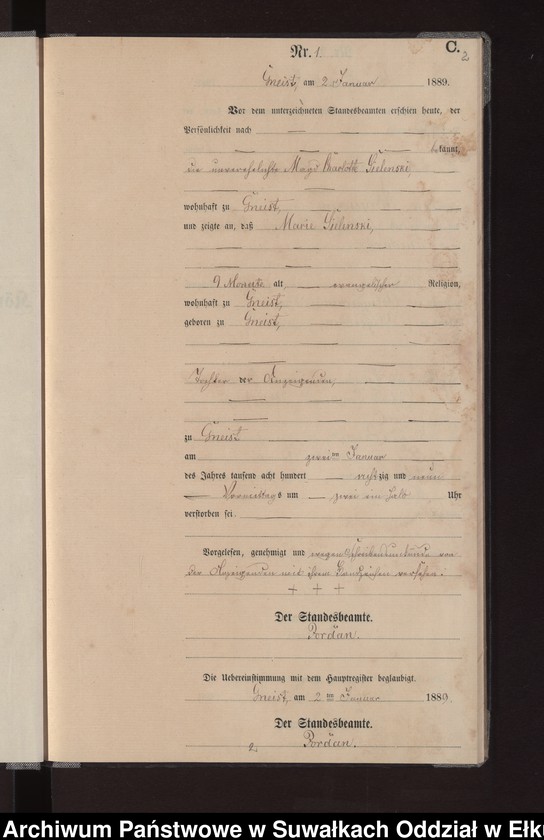 C.
2
Nr. 1.
Gneist, am 2 Januar 1889.
Vor dem unterzeichneten Standesbeamten erschien heute, der
Persönlichkeit nach —
— — — bekannt,
die unverehelichte Magd Charlotte Gielinski,
wohnhaft zu Gneist,
und zeigte an, daß Marie Gielinski,
9 Monate alt — evangelischer Religion,
wohnhaft zu Gneist,
geboren zu Gneist,
Tochter der Anzeigenden,
zu Gneist
am zweiten Januar
des Jahres tausend acht hundert — achtzig und neun
— Vormittags um — zwei ein halb Uhr
verstorben sei.
Vorgelesen, genehmigt und wegen Schreibensunkunde von
der Anzeigenden mit ihrem Handzeichen versehen:
+ + +
Der Standesbeamte.
Pordan.
Die Uebereinstimmung mit dem Hauptregister beglaubigt.
Gneist, am 2ten Januar 1889
Der Standesbeamte.
Pordan.
2.
Archiwum Państwowe w Suwałkach Oddział w Ełku